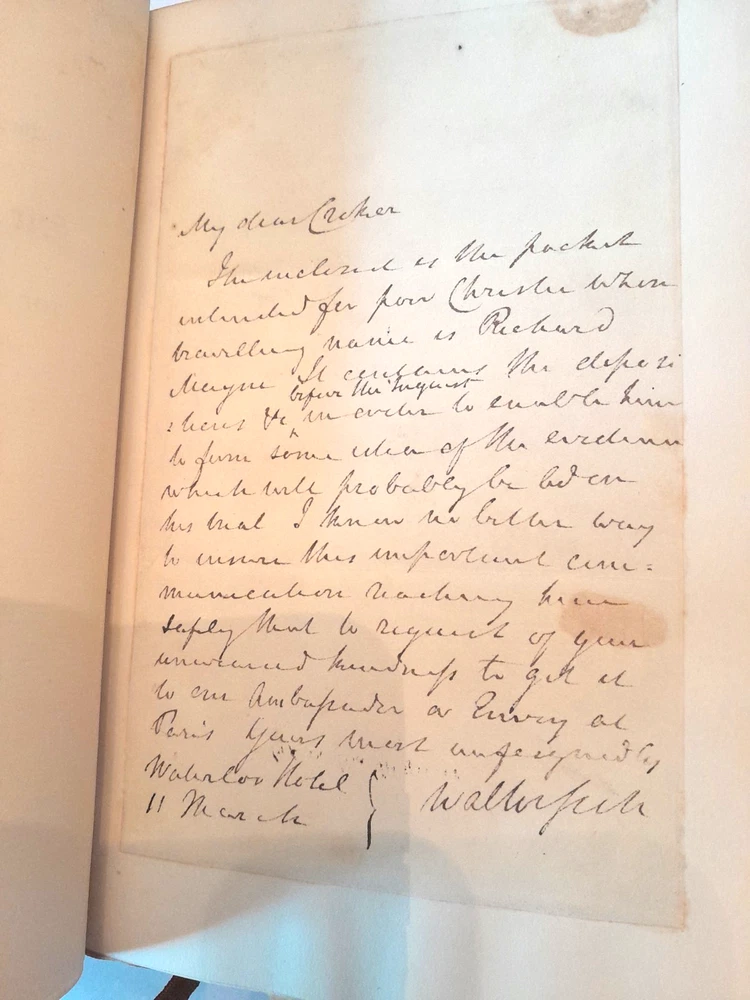 My dear Croker
The inclosed is the packet
intended for poor Christie whose
travelling name is Richard
Mayne It contains the deposi
before the Inquest
:tions &c in order to enable him
to form some idea of the evidence
which will probably be led on
his trial I know no better way
to ensure this important com=
munication reaching him
safely that to request of your
unwearied kindness to get it
to our Ambassador or Envoy at
Paris Yours most unfeignedly
Waterloo Hotel
11 March
Walter Scott